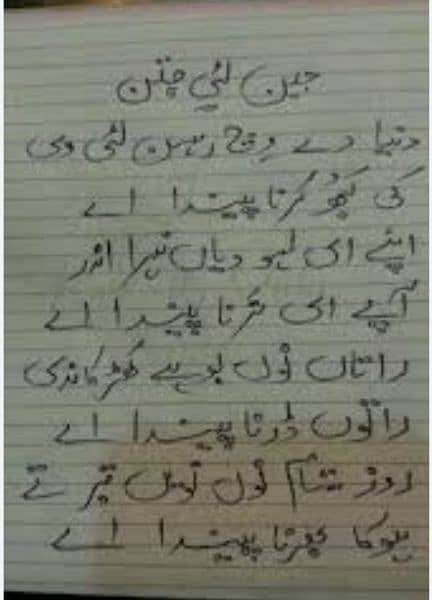 جین لئی جتن
دنیا دے وچ رہن لئی وی
کی کجھ کرنا پیندا اے
اپنے ای لہو دیاں نہراں اندر
آپے ای ترنا پیندا اے
راتاں نوں بوہے کھڑکاندی
راتوں ڈرنا پیندا اے
روز شام نوں نویں قبر تے
ہوکا بھرنا پیندا اے